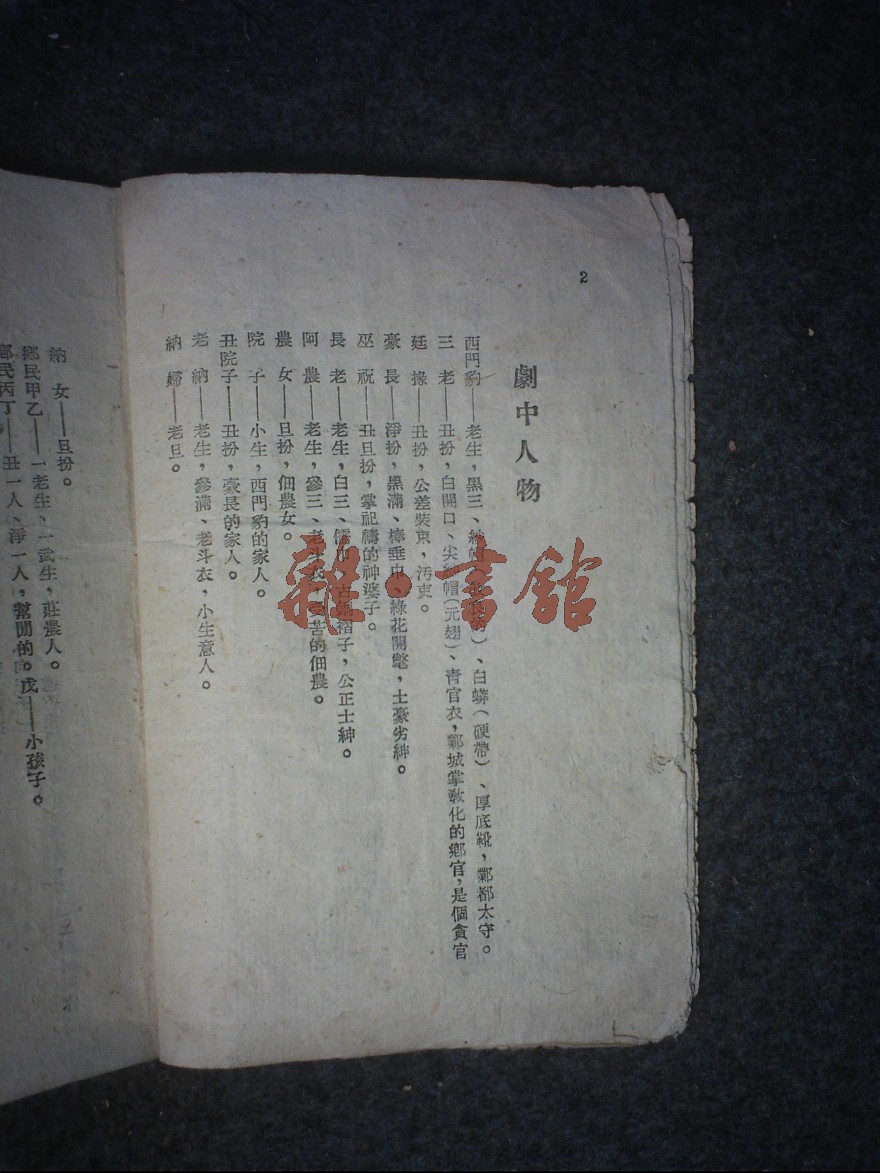 2
劇中人物
西門豹——老生，黑三、）、白蟒（硬帶）、厚底靴，鄴都太守。
三　老——丑扮，白開口、尖帽（元翅）、青官衣，鄴城掌教化的鄉官，是個貪官
廷　掾——丑扮，公差裝束，汚吏。
豪　長——淨扮，黑滿、棒垂巾、綠花開氅，土豪劣紳。
巫　祝——丑旦扮，掌祀禱的神婆子。
長　老——老生，白三、儒巾、古銅褶子，公正士紳。
阿　農——老生，參三、老斗衣，苦的佃農。
農　女——旦扮，佃農女。
院　子——小生，西門豹的家人。
丑院子——丑扮，豪長的家人。
老　納——老生，參滿、老斗衣，小生意人。
納　婦——老旦。
納　女——旦扮。
鄉民甲乙——一老生、一武生，莊農人。
鄉民丙丁——丑一人、淨一人，幫閒的。戊——小孩子。
雜·書館